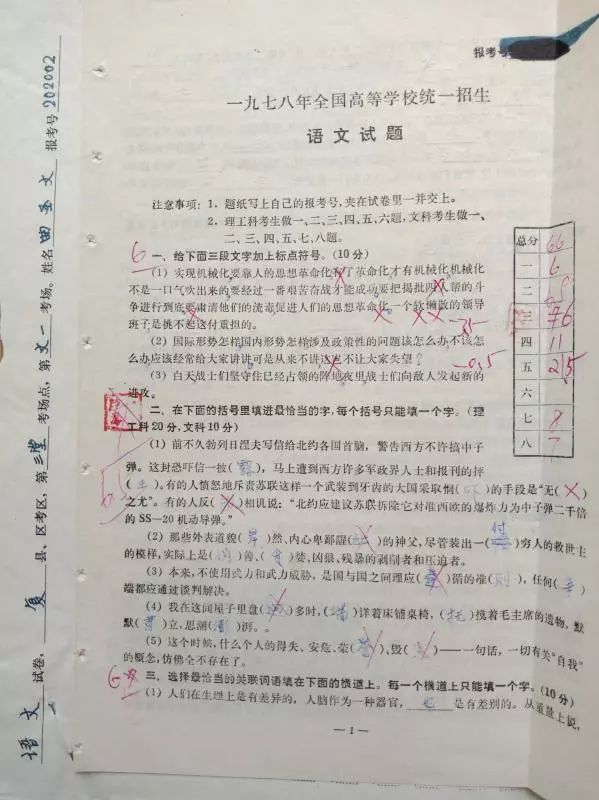 报考号
一九七八年全国高等学校统一招生
语文试题
注意事项：1．题纸写上自己的报考号，夹在试卷里一并交上。
2．理工科考生做一、二、三、四、五、六题，文科考生做一、
二、三、四、五、七、八题。
6
一、给下面三段文字加上标点符号。（10分）
（1）实现机械化要靠人的思想革命化有了革命化才有机械化机械化
不是一口气吹出来的要经过一番艰苦奋战才能成功要把揭批四人帮的斗
争进行到底要肃清他们的流毒促进人们的思想革命化一个软懒散的领导
班子是挑不起这付重担的。
（2）国际形势怎样国内形势怎样涉及政策性的问题该怎么办不该怎
么办应该经常给大家讲讲可是从来不讲这岂不让大家失望？
-0.5
（3）白天战士们坚守住已经占领的阵地夜里战士们向敌人发起新的
进攻。
二、在下面的括号里填进最恰当的字，每个括号只能填一个字。（理
工科20分，文科10分）
（1）前不久勃列日涅夫写信给北约各国首脑，警告西方不许搞中子
弹。这封恐吓信一披（露），马上遭到西方许多军政界人士和报刊的抨
（ ）。有的人愤怒地斥责苏联这样一个武装到牙齿的大国采取恫（吓）的手段是“无（ ）
之尤”。有的人反（ ）相讥说：“北约应建议苏联拆除它对准西欧的爆炸力为中子弹二千倍
的SS—20机动导弹。”
（2）那些外表道貌（岸）然、内心卑鄙龌（ ）的神父，尽管装出一（付）穷人的救世主
的模样，实际上是（ ）善、（ ）婪、凶狠、残暴的剥削者和压迫者。
（3）本来，不使用武力和武力威胁，是国与国之间理应（ ）循的准（则），任何（ ）
端都应通过谈判解决。
（4）我在这间屋子里盘（ ）多时，（ ）详着床铺桌椅，（ ）摸着毛主席的遗物，默
默（ ）立，思潮（澎）湃。。
（5）这个时候，什么个人的得失、安危、荣（ ）、毁（ ）——一句话，一切有关“自我”
的概念，仿佛全不存在了。
三、选择最恰当的关联词语填在下面的横道上。每一个横道上只能填一个字。（10分）
（1）人们在生理上是有差异的，人脑作为一种器官，也是有差别的。从重量上说，
—1—
总分 66
一 6
二
三 76
四 11
五 25
六
七 8
八 7
语文试卷，复县、区考区，第三堂考场点，第文一考场。姓名 曲圣文 报考号 202002